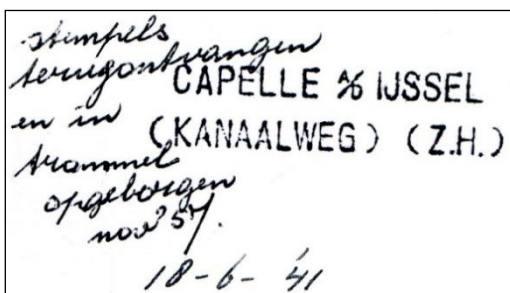 stempels
terugontvangen
CAPELLE A/D IJSSEL
en in
(KANAALWEG) (Z.H.)
trommel
opgeborgen
nov 57.
18-6-'41